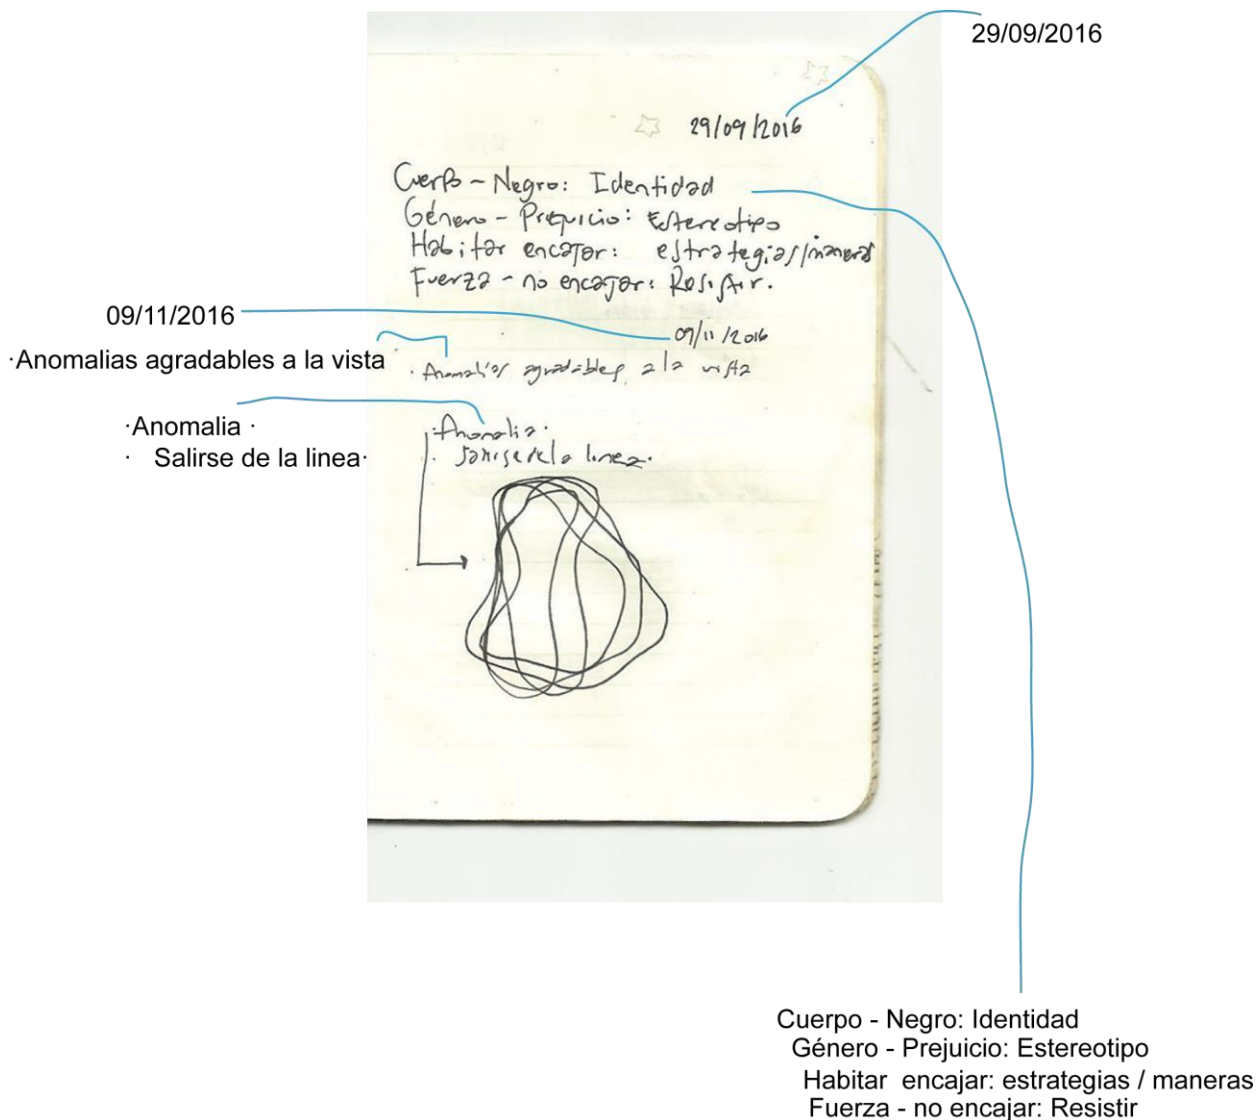 29/09/2016
29/09/2016
Cuerpo - Negro: Identidad
Género - Prejuicio: Estereotipo
Habitar encajar: estrategias/maneras
Fuerza - no encajar: Resistir.
09/11/2016
09/11/2016
·Anomalias agradables a la vista
· Anomalías agradables a la vista
·Anomalia ·
· Salirse de la linea·
·Anomalia·
· Salirse de la linea·
Cuerpo - Negro: Identidad
Género - Prejuicio: Estereotipo
Habitar encajar: estrategias / maneras
Fuerza - no encajar: Resistir